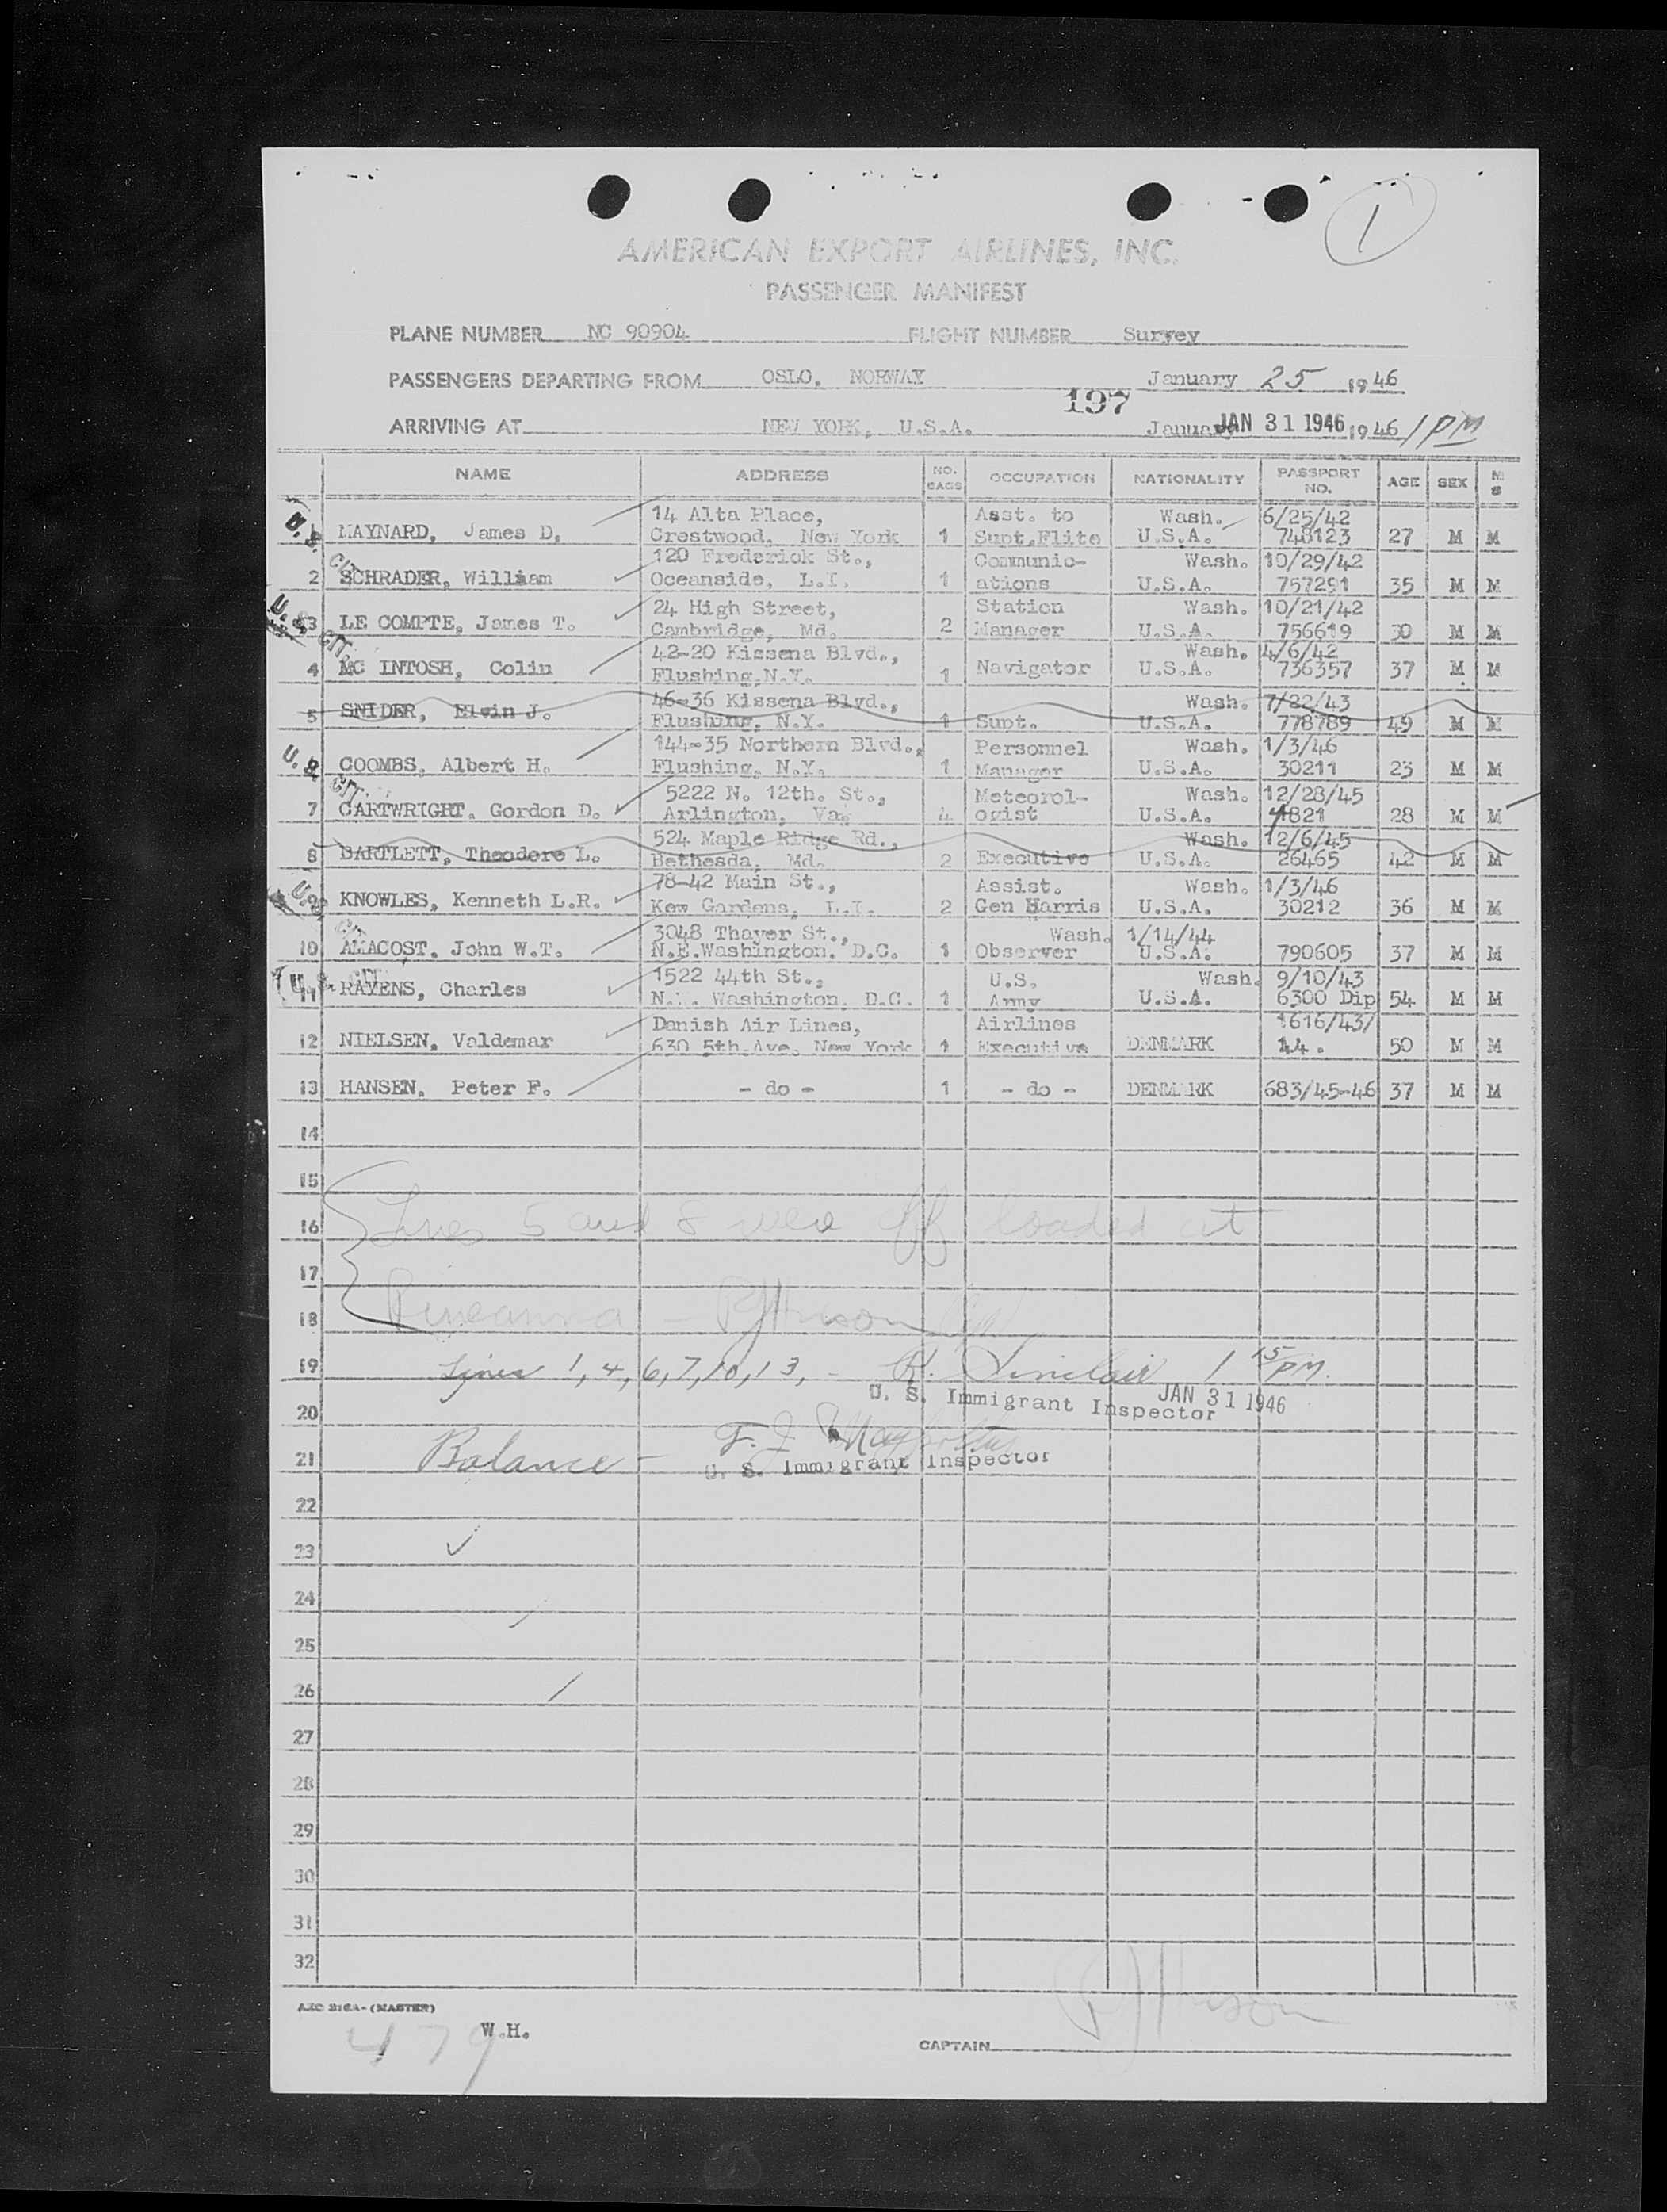 1
AMERICAN EXPORT AIRLINES, INC.
PASSENGER MANIFEST
PLANE NUMBER NC 90904 FLIGHT NUMBER Survey
PASSENGERS DEPARTING FROM OSLO, NORWAY January 25 1946
197
ARRIVING AT NEW YORK, U.S.A. January JAN 31 1946 1946 1PM
NAME ADDRESS NO. BAGS OCCUPATION NATIONALITY PASSPORT NO. AGE SEX M S
14 Alta Place, Asst. to Wash. 6/25/42
MAYNARD, James D. Crestwood, New York 1 Supt.Flite U.S.A. 748123 27 M M
120 Frederick St., Communic- Wash. 10/29/42
2 SCHRADER, William Oceanside, L.I. 1 ations U.S.A. 757291 35 M M
24 High Street, Station Wash. 10/21/42
3 LE COMPTE, James T. Cambridge, Md. 2 Manager U.S.A. 756619 30 M M
42-20 Kissena Blvd., Wash. 4/6/42
4 MC INTOSH, Colin Flushing,N.Y. 1 Navigator U.S.A. 736357 37 M M
46-36 Kissena Blvd., Wash. 7/22/43
5 SNIDER, Elwin J. Flushing, N.Y. 1 Supt. U.S.A. 778789 49 M M
144-35 Northern Blvd., Personnel Wash. 1/3/46
COOMBS, Albert H. Flushing, N.Y. 1 Manager U.S.A. 30211 23 M M
5222 N. 12th. St., Meteorol- Wash. 12/28/45
7 CARTWRIGHT. Gordon D. Arlington, Va. 4 ogist U.S.A. 4821 28 M M
524 Maple Ridge Rd., Wash. 12/6/45
8 BARTLETT, Theodore L. Bethesda, Md. 2 Executive U.S.A. 26465 42 M M
78-42 Main St., Assist. Wash. 1/3/46
9 KNOWLES, Kenneth L.R. Kew Gardens, L.I. 2 Gen Harris U.S.A. 30212 36 M M
3048 Thayer St., Wash. 1/14/44
10 AMACOST. John W.T. N.E.Washington. D.C. 1 Observer U.S.A. 790605 37 M M
1522 44th St., U.S. Wash. 9/10/43
11 RAVENS, Charles Washington. D.C. 1 Army U.S.A. 6300 Dip 54 M M
Danish Air Lines, Airlines 1616/43/
12 NIELSEN. Valdemar 630 5th.Ave. New York 1 Executive DENMARK 44. 50 M M
13 HANSEN, Peter F. - do - 1 - do - DENMARK 683/45-46 37 M M
U. S. CIT.
U. S. CIT.
U. S. CIT.
U. S. CIT.
U. S. CIT.
14
15
16 Lines 5 and 8 were off loaded at
17
18 Rineanna -
19 Lines 1, 4, 6, 7, 10, 13, - R. Sinclair 1 15 PM.
U. S. Immigrant Inspector JAN 31 1946
20
21 Balance - F. J.
U. S. Immigrant Inspector
22
23
24
25
26
27
28
29
30
31
32
(MASTER)
479 W.H.
CAPTAIN